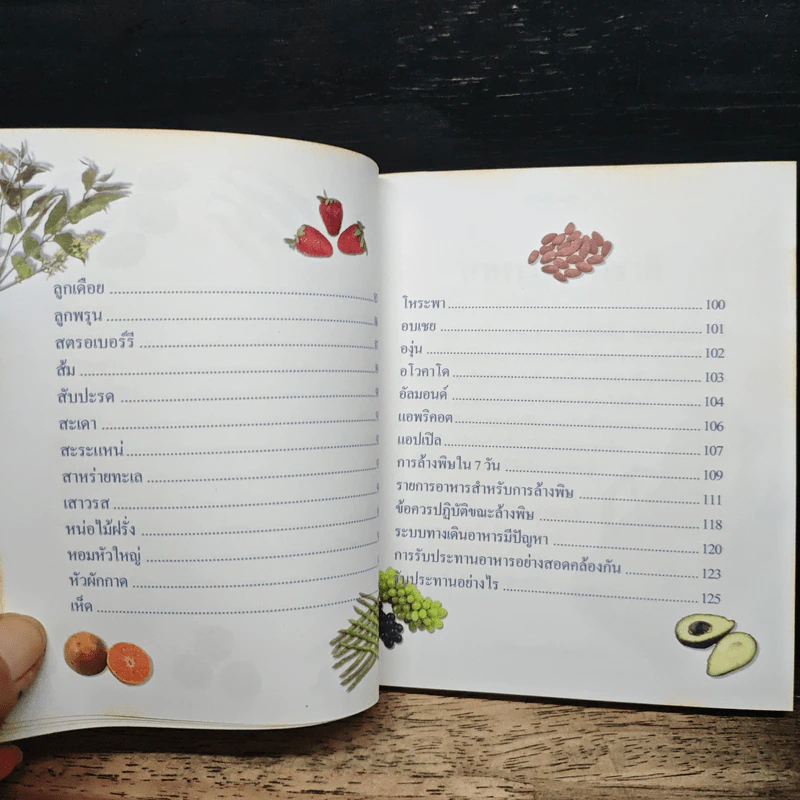 ลูกเดือย
ลูกพรุน
สตรอเบอร์รี
ส้ม
สับปะรด
สะเดา
สะระแหน่
สาหร่ายทะเล
เสาวรส
หน่อไม้ฝรั่ง
หอมหัวใหญ่
หัวผักกาด
เห็ด
โหระพา 100
อบเชย 101
องุ่น 102
อโวคาโด 103
อัลมอนด์ 104
แอพริคอต 106
แอปเปิล 107
การล้างพิษใน 7 วัน 109
รายการอาหารสำหรับการล้างพิษ 111
ข้อควรปฏิบัติขณะล้างพิษ 118
ระบบทางเดินอาหารมีปัญหา 120
การรับประทานอาหารอย่างสอดคล้องกัน 123
รับประทานอย่างไร 125